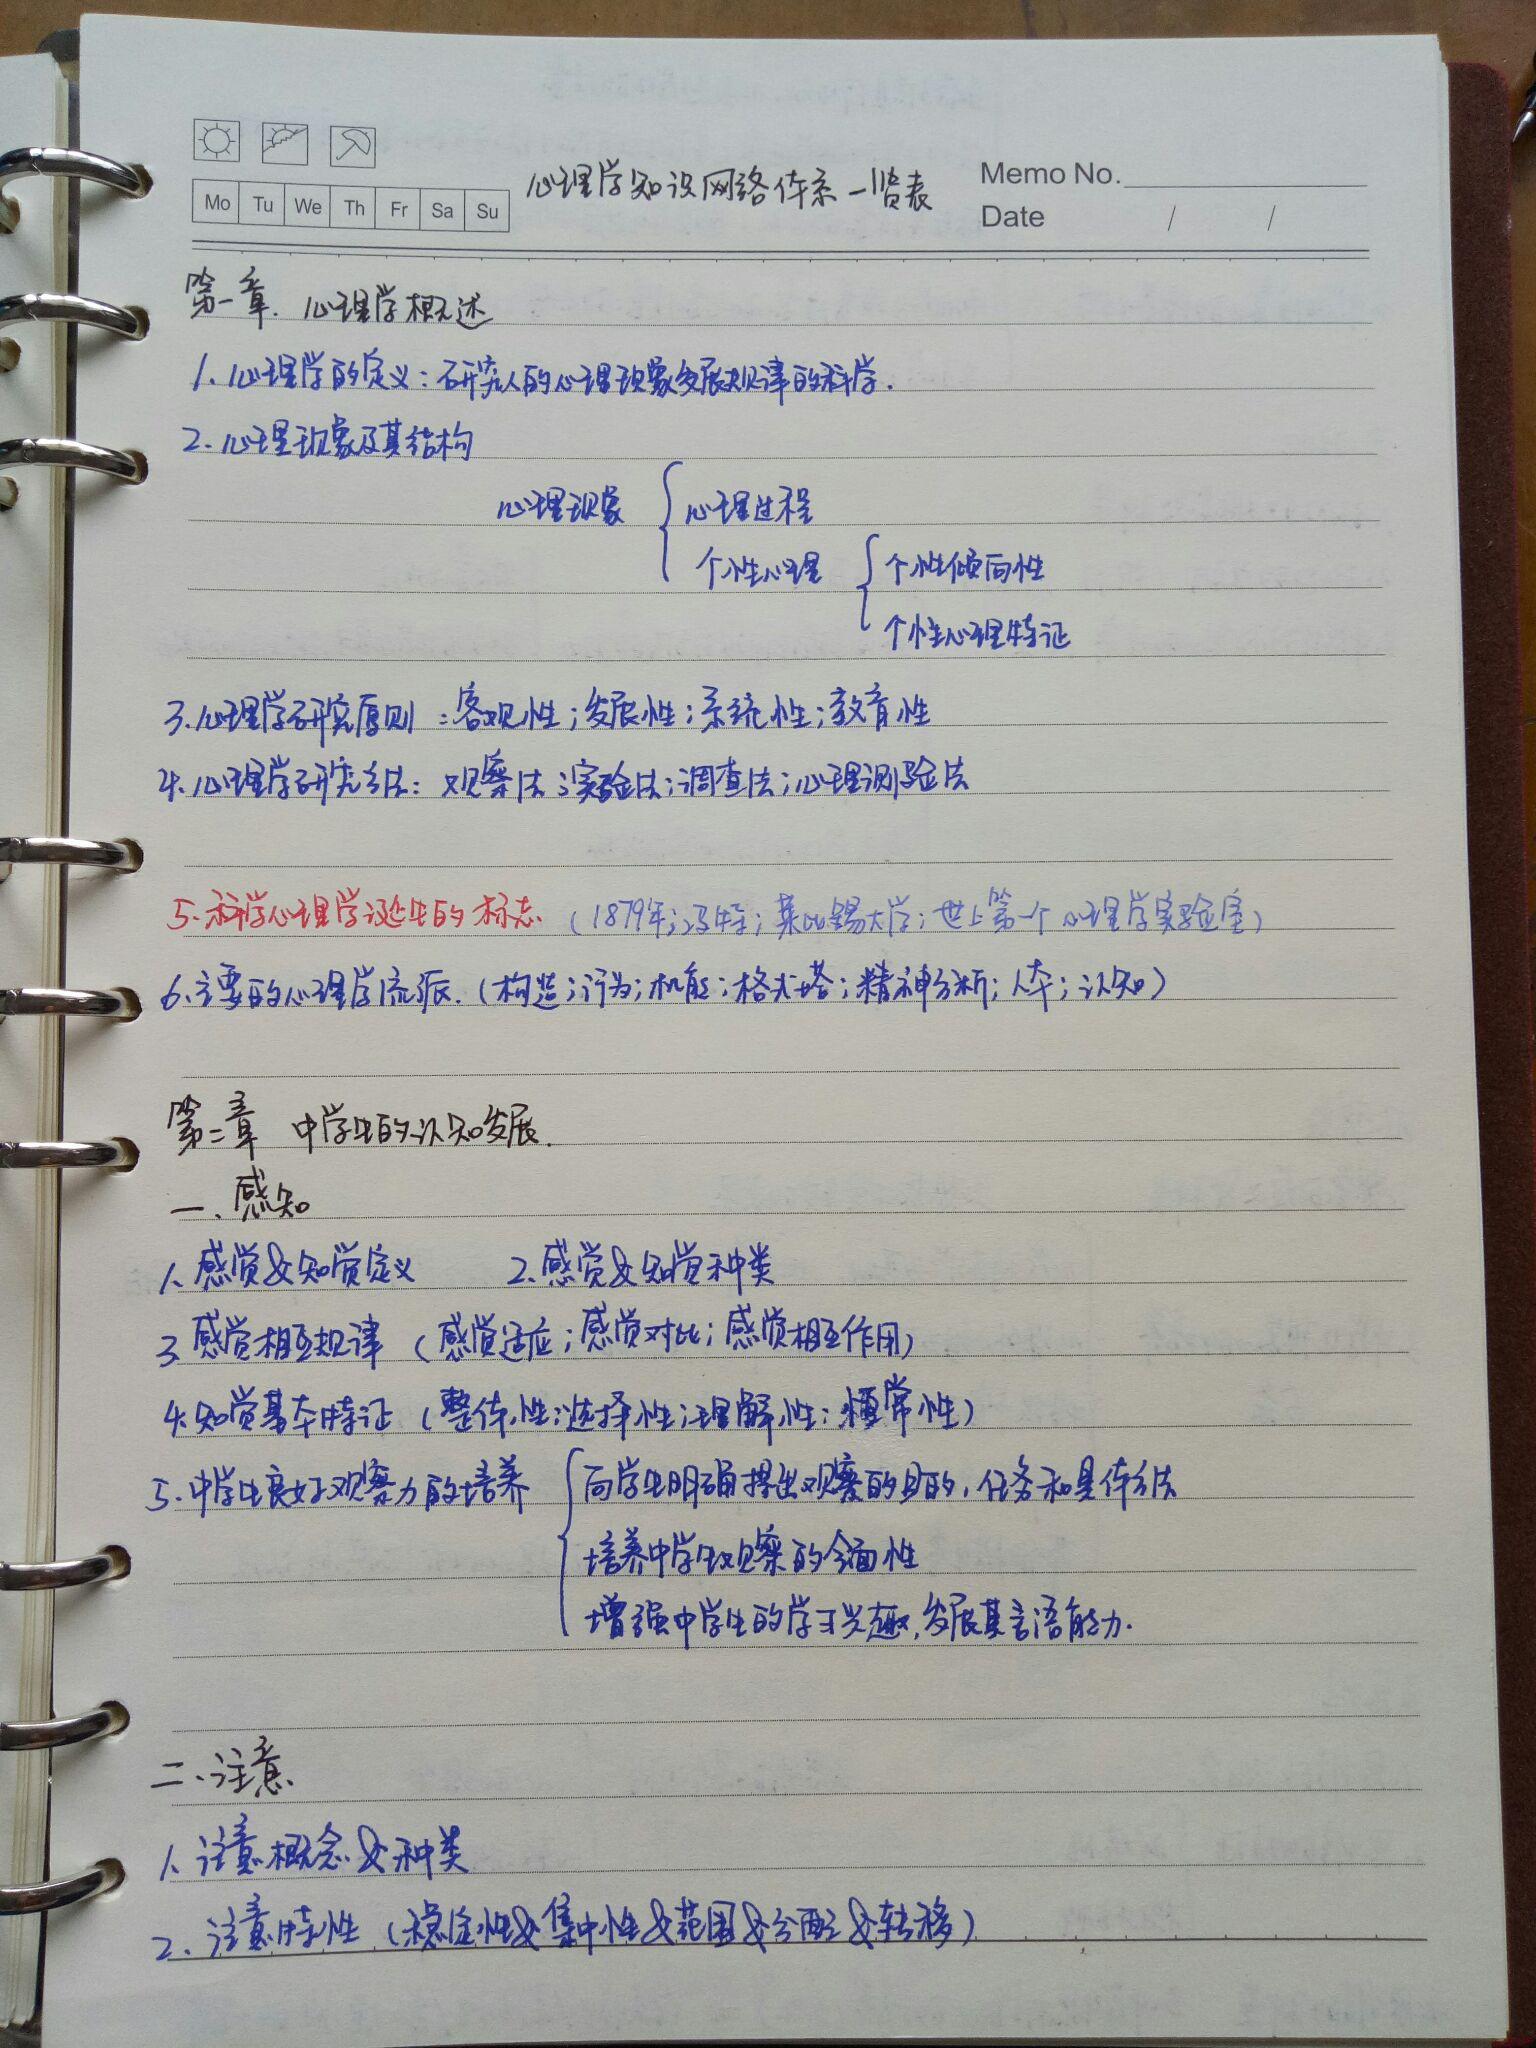 心理学知识网络体系一览表
Memo No.
Mo Tu We Th Fr Sa Su
Date / /
第一章. 心理学概述
1. 心理学的定义：研究人的心理现象发展规律的科学.
2. 心理现象及其结构
心理现象 { 心理过程
个性心理 { 个性倾向性
个性心理特证
3. 心理学研究原则：客观性；发展性；系统性；教育性
4. 心理学研究方法：观察法；实验法；调查法；心理测验法
5. 科学心理学诞生的标志（1879年；冯特；莱比锡大学；世上第一个心理学实验室）
6. 主要的心理学流派.（构造；行为；机能；格式塔；精神分析；人本；认知）
第二章 中学生的认知发展.
一、感知
1. 感觉&知觉定义 2. 感觉&知觉种类
3. 感觉相互规律（感觉适应；感觉对比；感觉相互作用）
4. 知觉基本特证（整体性；选择性；理解性；恒常性）
5. 中学生良好观察力的培养 { 向学生明确提出观察的目的，任务和具体方法
培养中学生观察的全面性
增强中学生的学习兴趣，发展其言语能力.
二、注意
1. 注意概念&种类
2. 注意特性（稳定性&集中性&范围&分配&转移）